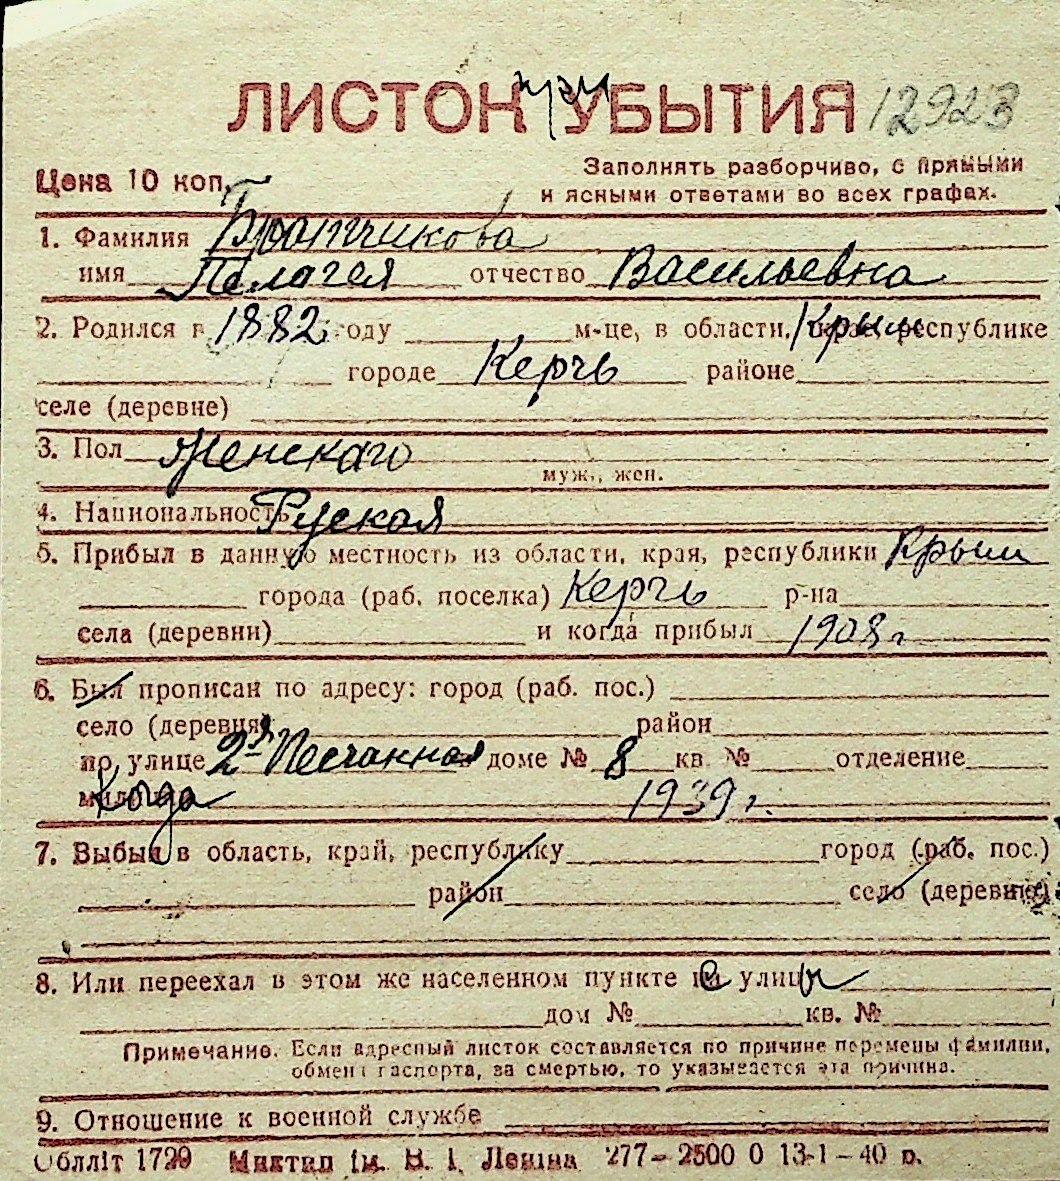 ЛИСТОК при УБЫТИЯ 12923
Цена 10 коп.
Заполнять разборчиво, с прямыми
и ясными ответами во всех графах.
1. Фамилия Братчикова
имя Пелагея отчество Васильевна
2. Родился в 1882 году м-це, в области, крае, республике Крым
городе Керчь районе
селе (деревне)
3. Пол Женскаго
муж., жен.
4. Национальность Руская
5. Прибыл в данную местность из области, края, республики Крым
города (раб. поселка) Керчь р-на
села (деревни) и когда прибыл 1908 г
6. Был прописан по адресу: город (раб. пос.)
село (деревня) район
по улице 2я Песчанная доме № 8 кв № отделение
милиции Когда 1939 г.
7. Выбыл в область, край, республику город (раб. пос.)
район село (деревню)
8. Или переехал в этом же населенном пункте на с улицы
дом № кв. №
Примечание. Если адресный листок составляется по причине перемены фамилии,
обмена паспорта, за смертью, то указывается эта причина.
9. Отношение к военной службе
Обллiт 1729 Миктип iм. В. I. Ленiна 277—2500 0 13-1—40 р.